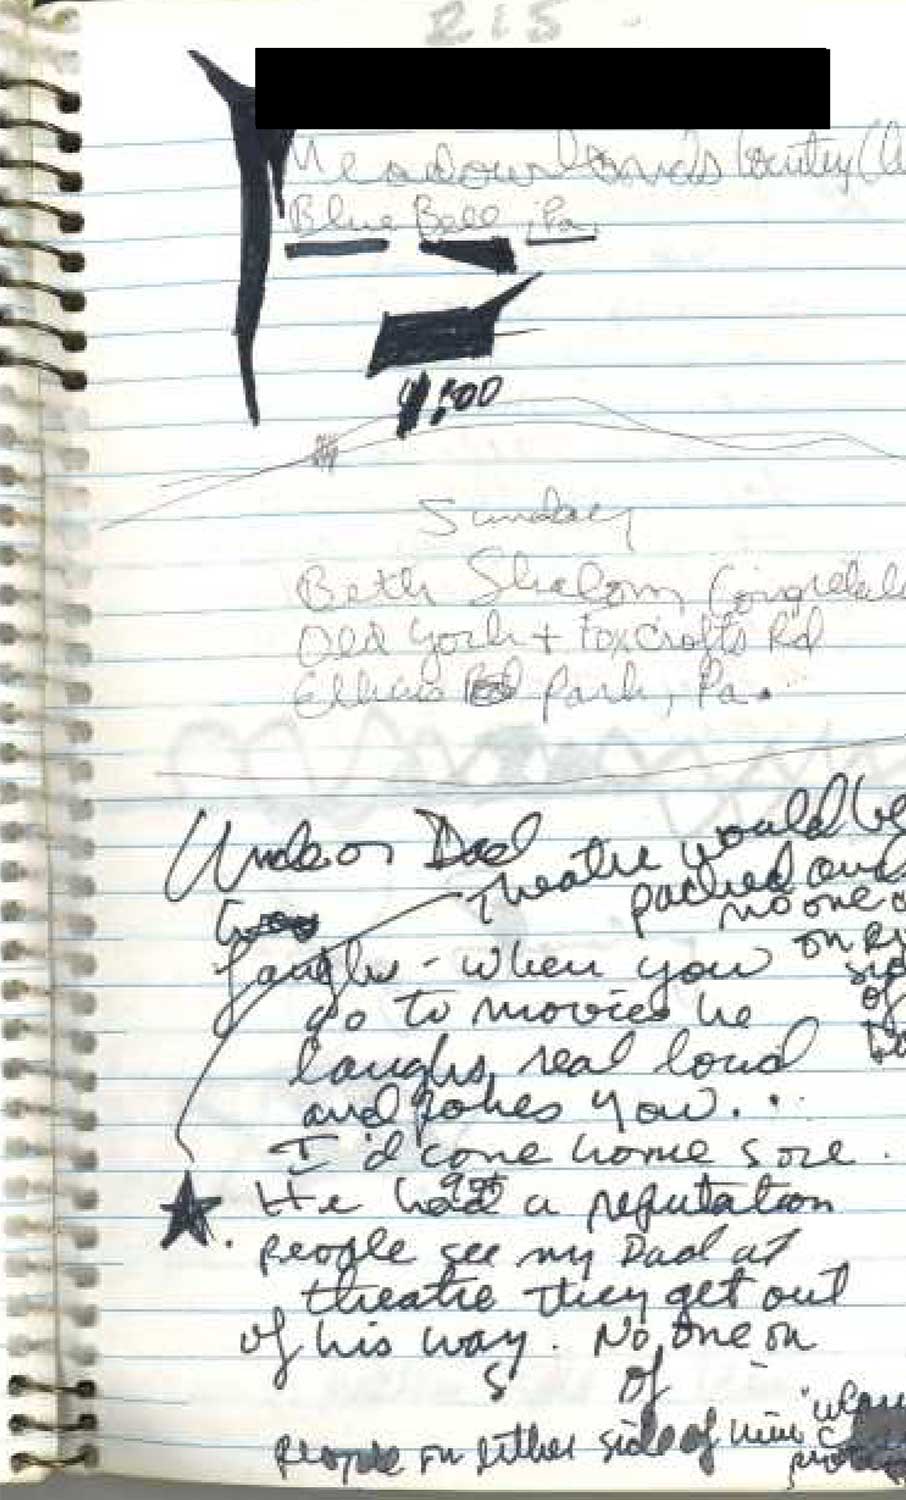 215
Meadowlands Country Cl
Blue Bell, Pa.
4,500
Sunday
Beth Shalom Congregat
Old York + FoxCrofts Rd
Elkins Park, Pa.
Dad
Theatre would be
packed and
no one o
on
sid
of
Laughs - when you
go to movies he
laughs real loud
and pokes you...
I'd come home sore.
He got a reputation
people see my Dad at
theatre they get out
of his way. No one on
S of
people on either side of him